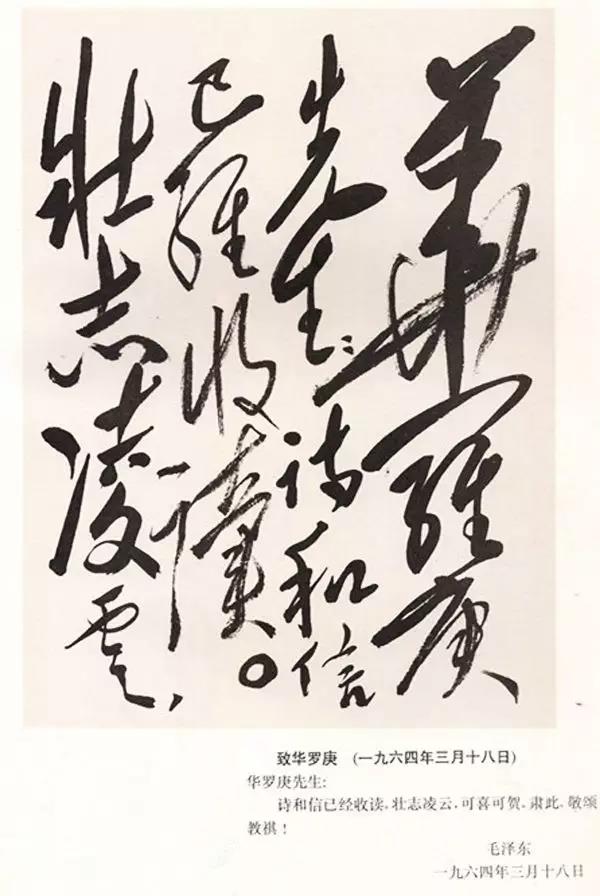 華羅庚
先生：诗和信
已經收讀。
壯志凌雲，
致华罗庚 (一九六四年三月十八日)
华罗庚先生:
诗和信已经收读。壮志凌云，可喜可贺。肃此，敬颂
教祺！
毛泽东
一九六四年三月十八日